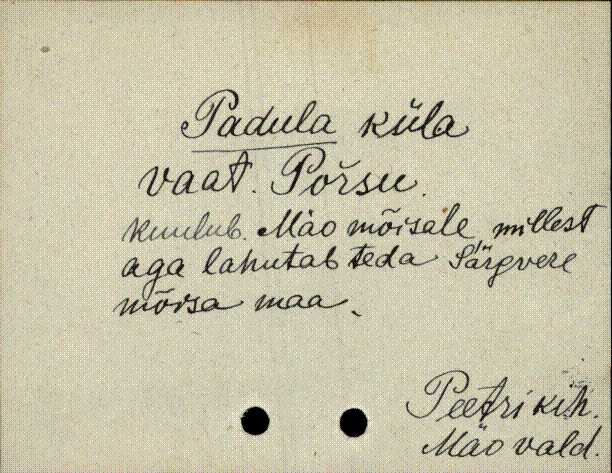 Padula küla
vaat. Poršu.
kuulub. Mäo mõisale millest
aga lahutab teda Särgvere
mõisa maa.
Peetri kih.
Mäo vald.